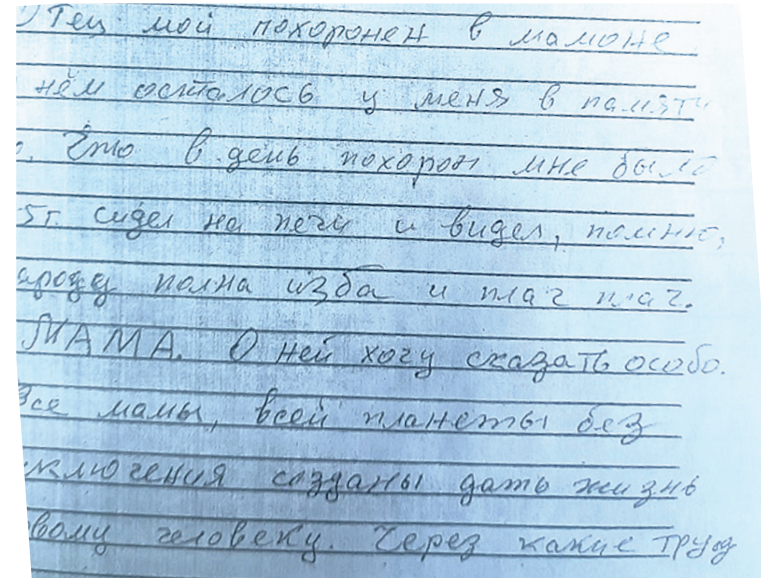 Отец мой похоронен в мамоне
нём осталось у меня в памяти
Что в день похорон мне было
5г. сидел на печи и видел, помню,
народу полна изба и плач плач.
МАМА. О ней хочу сказать особо.
Все мамы, всей планеты без
исключения созданы дать жизнь
новому человеку. Через какие труд